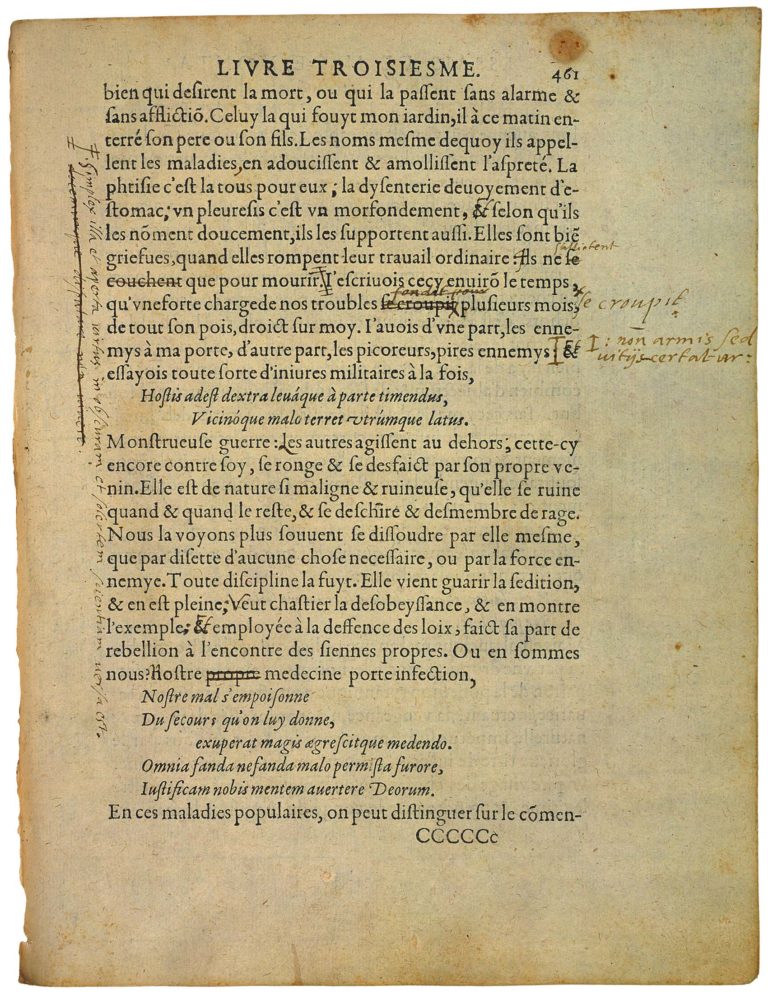 LIVRE TROISIESME. 461
bien qui desirent la mort, ou qui la passent sans alarme &
sans afflictiõ. Celuy la qui fouyt mon iardin, il à ce matin en-
terré son pere ou son fils. Les noms mesme dequoy ils appel-
lent les maladies, en adoucissent & amollissent l'aspreté. La
phtisie c'est la tous pour eux; la dysenterie deuoyement d'e-
stomac; vn pleuresis c'est vn morfondement, & selon qu'ils
les nõment doucement, ils les supportent aussi. Elles sont biẽ
griefues, quand elles rompent leur trauail ordinaire: Ils ne se
couchent que pour mourir. I'escriuois cecy enuirõ le temps,
fondit pour
qu'vne forte charge de nos troubles se croupit plusieurs mois, se croupit
de tout son pois, droict sur moy. I'auois d'vne part, les enne-
mys à ma porte, d'autre part, les picoreurs, pires ennemys: & : non armis sed
vitijs certatur:
essayois toute sorte d'iniures militaires à la fois,
Hostis adest dextra leuáque à parte timendus,
Vicinóque malo terret vtrúmque latus.
Monstrueuse guerre: Les autres agissent au dehors; cette-cy
encore contre soy, se ronge & se desfaict par son propre ve-
nin. Elle est de nature si maligne & ruineuse, qu'elle se ruine
quand & quand le reste, & se deschire & desmembre de rage.
Nous la voyons plus souuent se dissoudre par elle mesme,
que par disette d'aucune chose necessaire, ou par la force en-
nemye. Toute discipline la fuyt. Elle vient guarir la sedition,
& en est pleine; Veut chastier la desobeyssance, & en montre
l'exemple; & employée à la deffence des loix, faict sa part de
rebellion à l'encontre des siennes propres. Ou en sommes
nous? Nostre propre medecine porte infection,
Nostre mal s'empoisonne
Du secours qu'on luy donne,
exuperat magis ægrescitque medendo.
Omnia fanda nefanda malo permista furore,
Iustificam nobis mentem auertere Deorum.
En ces maladies populaires, on peut distinguer sur le cõmen-
CCCCCc
simplex illa et aperta virtus in obscuram et solertem scientiam versa est.